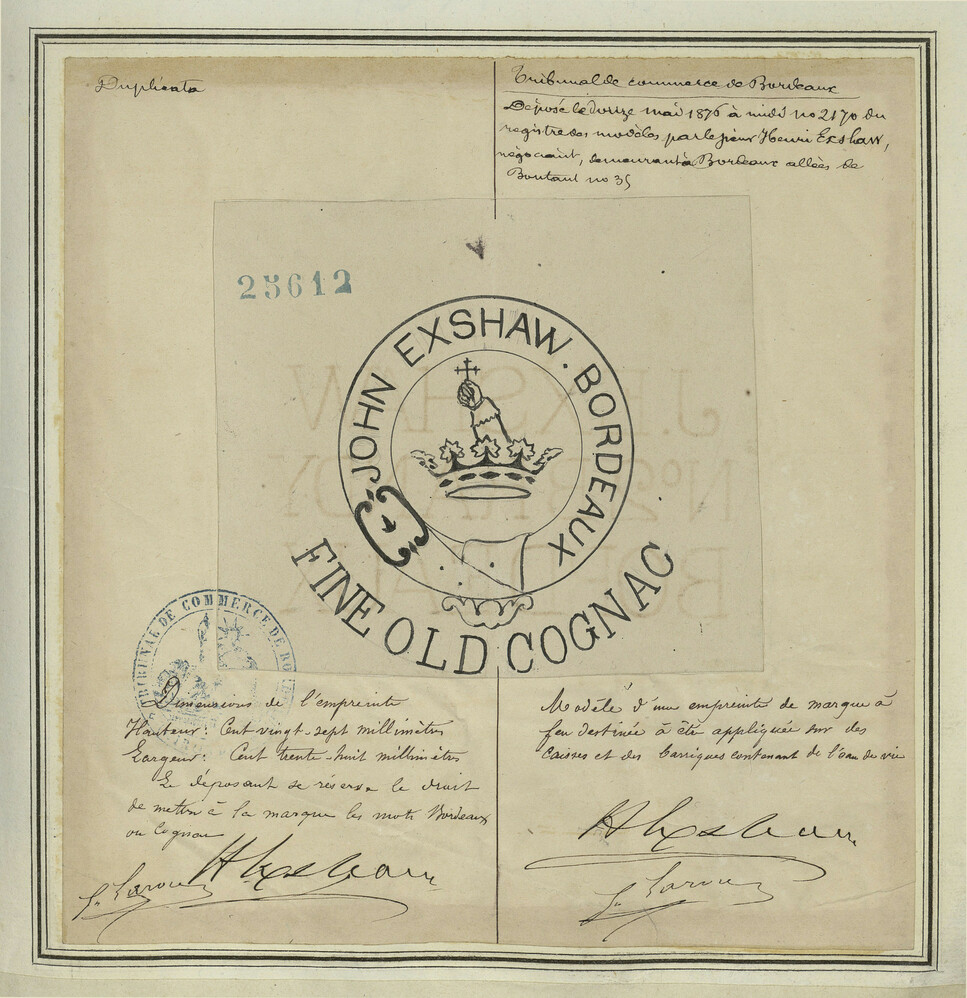 Duplicata
Tribunal de commerce de Bordeaux
Déposé le douze mai 1876 à midi no 2170 du
registre des modèles par le sieur Henri Exshaw,
négociant, demeurant à Bordeaux allées de
Boutaut no 35
25612
JOHN EXSHAW. BORDEAUX
FINE OLD COGNAC
J. EXSHAW
No 2 BRANDY
BORDEAUX
TRIBUNAL DE COMMERCE DE BO
Dimensions de l'empreinte
Hauteur: Cent vingt-sept millimètres
Largeur: Cent trente-huit millimètres
Le déposant se réserve le droit
de mettre à la marque les mots Bordeaux
ou Cognac
H Exshaw
Modèle d'une empreinte de marque à
feu destinée à être appliquée sur des
caisses et des barriques contenant de l'eau de vie
H Exshaw